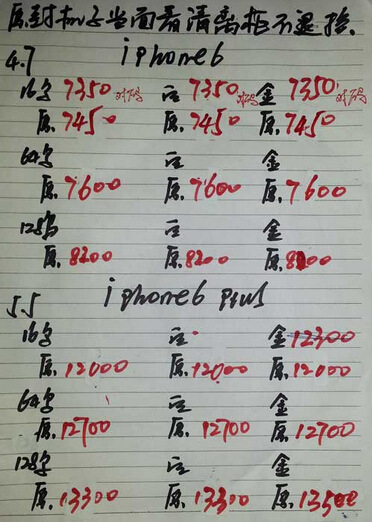 原封机子当面看清离柜不退换.
4.7 iphone6
16字 7350对码 白 7350对码 金 7350对码
原.7450 原.7450 原.7450
64字 白 金
原.7600 原.7600 原.7600
128字 白 金
原.8200 原.8200 原.8200
5.5 iphone6 plus
16字 白 金12300
原.12000 原.12000 原.12000
64字 白 金
原.12700 原.12700 原.12700
128字 白 金
原.13300 原.13300 原.13500